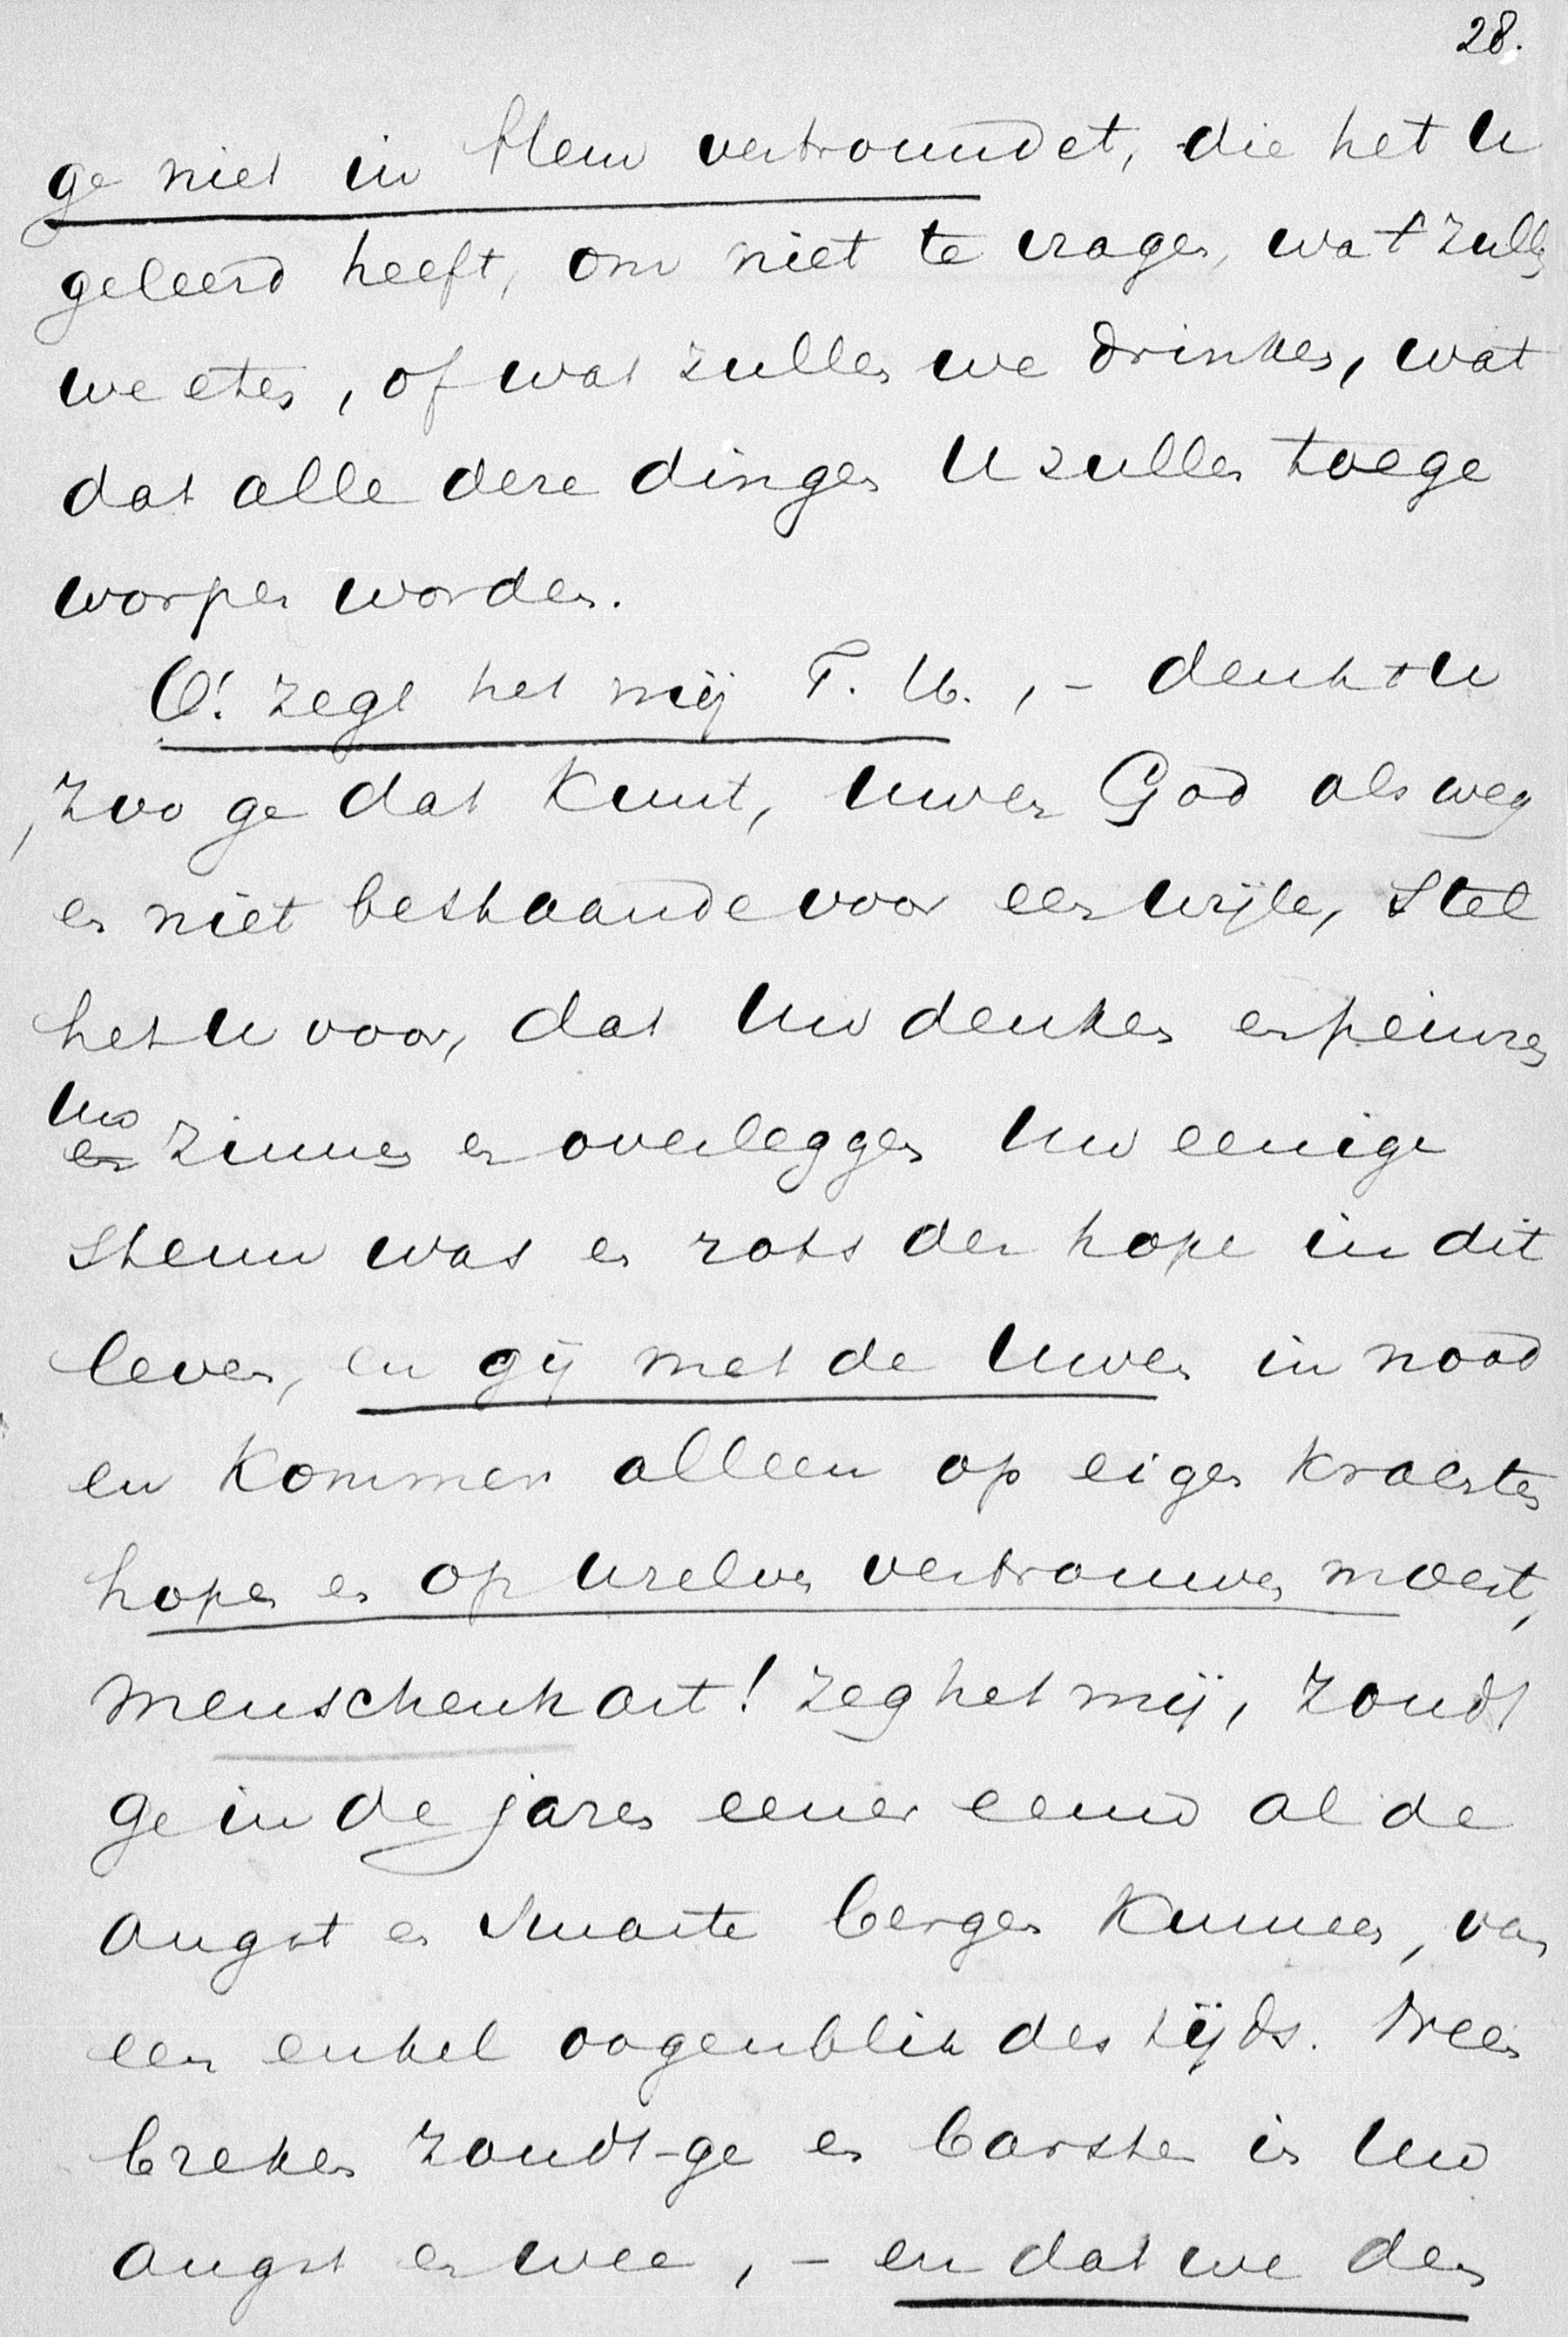 28.
ge niet in Hem vertrouwdet, die het U
geleerd heeft, om niet te vragen, wat zullen
we eten, of wat zullen we drinken, wat
dat alle deze dingen U zullen toege
worpen worden.
O! zegt het mij T. U., - denkt U
, zoo ge dat kunt, Uwen God als weg
en niet bestaande voor een wijle, stel
het U voor, dat Uw denken en peinzen
Uw
en zinnen en overleggen Uw eenige
steun was en rots der hope in dit
leven, en gij met de Uwen in nood
en kommer alleen op eigen krachten
hopen en op Uzelven vertrouwen moest,
menschenhart! zeg het mij, zoudt
ge in de jaren eener eeuw al de
angst en smarte bergen kunnen, van
een enkel oogenblik des tijds. Neen
breken zoudt-ge en barsten in Uw
angst en wee, - en dat we den